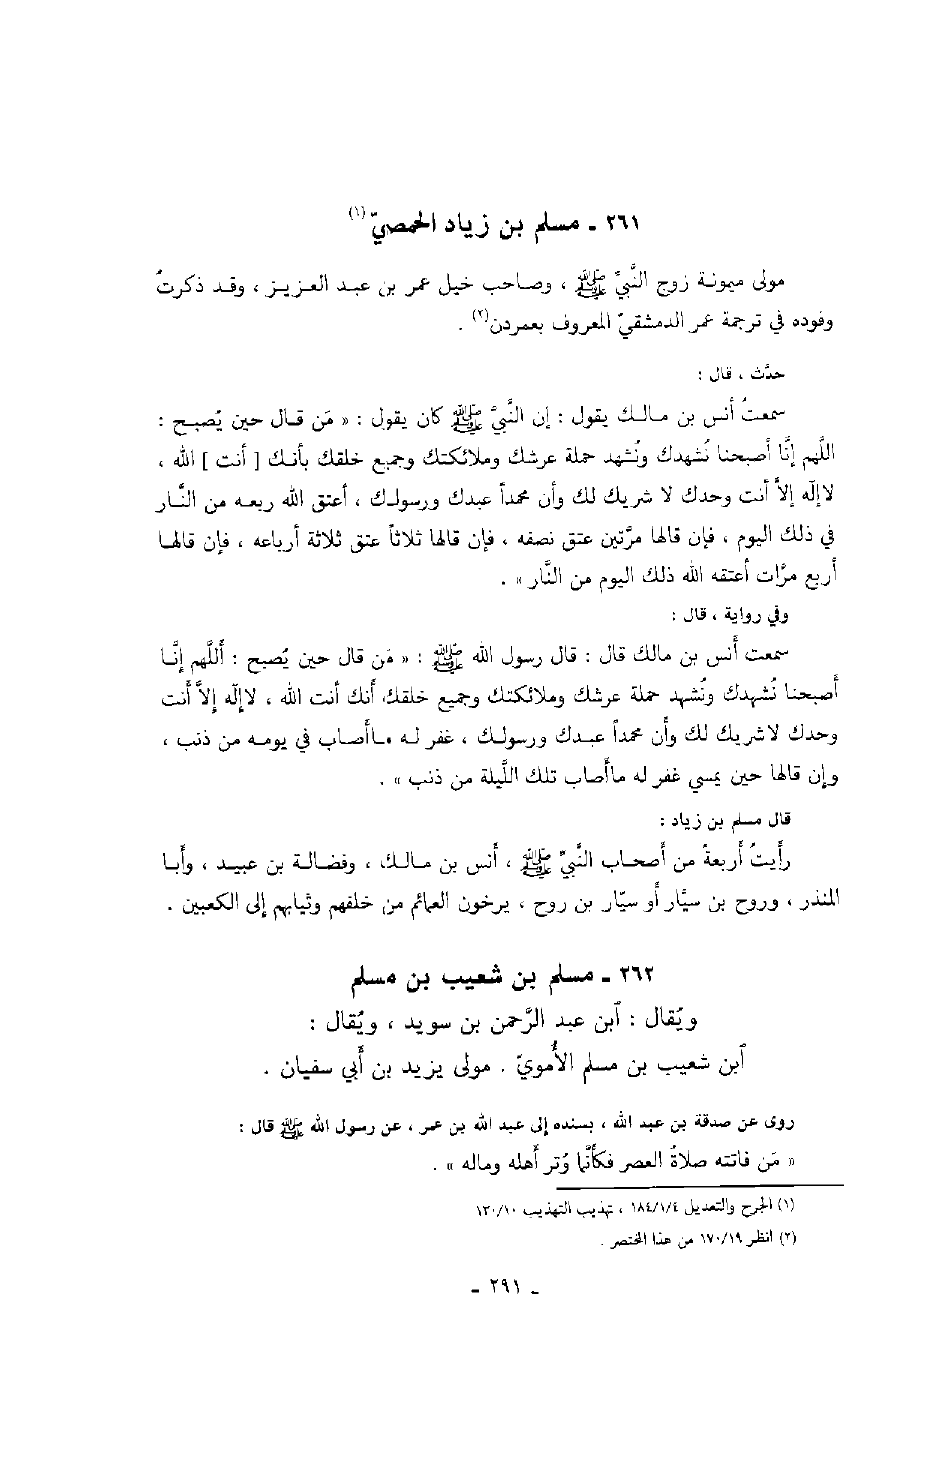 ٢٦١ ـ مسلم بن زياد الحمصيّ(١)
مولى ميمونة زوج النَّبيِّ ﷺ ، وصاحب خيل عمر بن عبد العزيز ، وقد ذكرتُ
وفوده في ترجمة عمر الدمشقيّ المعروف بعمردن(٢) .
حدَّث ، قال :
سمعتُ أنس بن مالك يقول : إن النَّبيَّ ﷺ كان يقول : « مَن قال حين يُصبح :
اللَّهم إنَّا أصبحنا نُشهدك ونُشهد حملة عرشك وملائكتك وجميع خلقك بأنك [ أنت ] الله ،
لاإله إلاَّ أنت وحدك لا شريك لك وأن محمداً عبدك ورسولك ، أعتق الله ربعه من النَّار
في ذلك اليوم ، فإن قالها مرَّتين عتق نصفه ، فإن قالها ثلاثاً عتق ثلاثة أرباعه ، فإن قالها
أربع مرَّات أعتقه الله ذلك اليوم من النَّار » .
وفي رواية ، قال :
سمعت أنس بن مالك قال : قال رسول الله ﷺ : « مَن قال حين يُصبح : أللَّهم إنَّا
أصبحنا نُشهدك ونُشهد حملة عرشك وملائكتك وجميع خلقك، أنك أنت الله ، لاإله إلاَّ أنت
وحدك لاشريك لك وأن محمداً عبدك ورسولك ، غفر له ماأصاب في يومه من ذنب ،
وإن قالها حين يمسي غفر له ماأصاب تلك اللَّيلة من ذنب » .
قال مسلم بن زياد :
رأيتُ أربعةً من أصحاب النَّبيِّ ﷺ ، أنس بن مالك ، وفضالة بن عبيد ، وأبا
المنذر ، وروح بن سيَّار أو سيّار بن روح ، يرخون العمائم من خلفهم وثيابهم إلى الكعبين .
٢٦٢ ـ مسلم بن شعيب بن مسلم
ويُقال : ٱبن عبد الرَّحمن بن سويد ، ويُقال :
ٱبن شعيب بن مسلم الأُمويّ . مولى يزيد بن أبي سفيان .
روى عن صدقة بن عبد الله ، بسنده إلى عبد الله بن عمر ، عن رسول الله ﷺ قال :
« مَن فاتته صلاةُ العصر فكأنَّما وُتر أهله وماله » .
(١) الجرح والتعديل ١٨٤/١/٤ ، تهذيب التهذيب ١٣٠/١٠
(٢) انظر ١٧٠/١٩ من هذا المختصر .
ـ ٢٩١ ـ